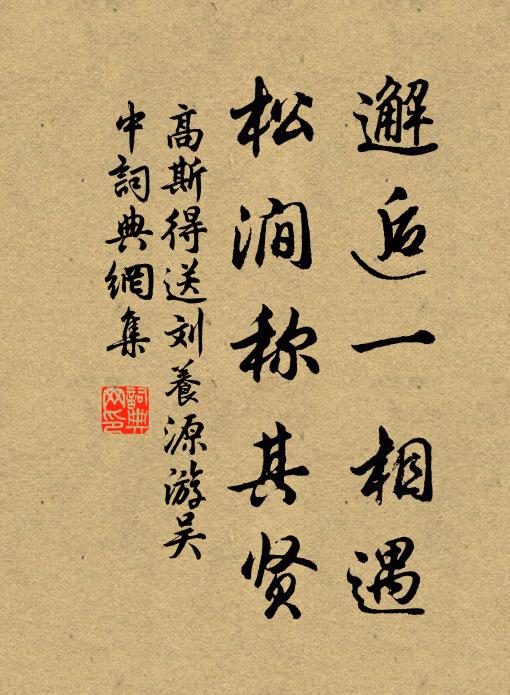 邂逅一相遇
松涧称其贤
高斯得送刘養源游吴
中詞典網集
詞典网印